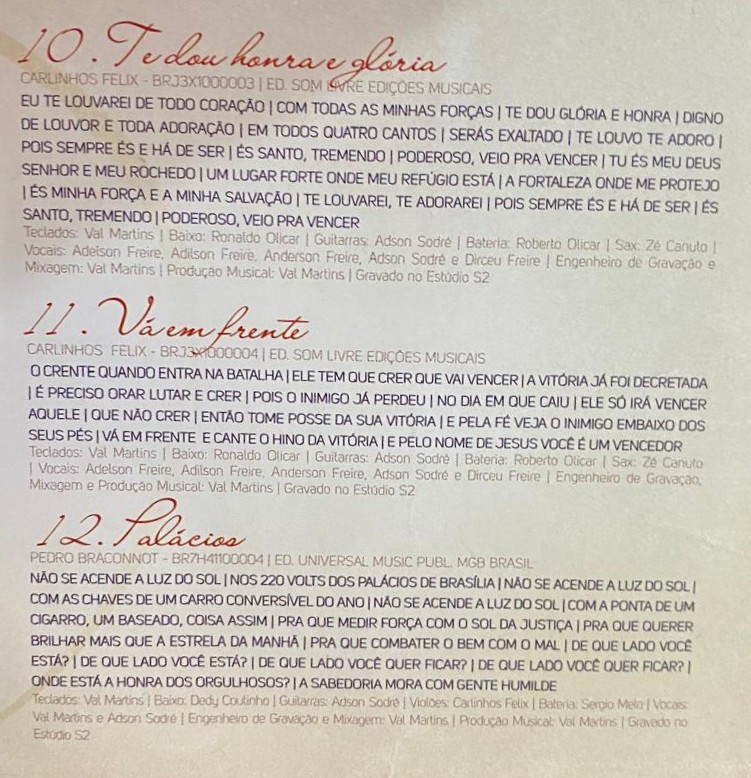 10. Te dou honra e glória
CARLINHOS FELIX - BRJ3X1000003 | ED. SOM LIVRE EDIÇÕES MUSICAIS
EU TE LOUVAREI DE TODO CORAÇÃO | COM TODAS AS MINHAS FORÇAS | TE DOU GLÓRIA E HONRA | DIGNO
DE LOUVOR E TODA ADORAÇÃO | EM TODOS QUATRO CANTOS | SERÁS EXALTADO | TE LOUVO TE ADORO |
POIS SEMPRE ÉS E HÁ DE SER | ÉS SANTO, TREMENDO | PODEROSO, VEIO PRA VENCER | TU ÉS MEU DEUS
SENHOR E MEU ROCHEDO | UM LUGAR FORTE ONDE MEU REFÚGIO ESTÁ | A FORTALEZA ONDE ME PROTEJO
| ÉS MINHA FORÇA E A MINHA SALVAÇÃO | TE LOUVAREI, TE ADORAREI | POIS SEMPRE ÉS E HÁ DE SER | ÉS
SANTO, TREMENDO | PODEROSO, VEIO PRA VENCER
Teclados: Val Martins | Baixo: Ronaldo Olicar | Guitarras: Adson Sodré | Bateria: Roberto Olicar | Sax: Zé Canuto |
Vocais: Adelson Freire, Adilson Freire, Anderson Freire, Adson Sodré e Dirceu Freire | Engenheiro de Gravação e
Mixagem: Val Martins | Produção Musical: Val Martins | Gravado no Estúdio S2
11. Vá em frente
CARLINHOS FELIX - BRJ3X1000004 | ED. SOM LIVRE EDIÇÕES MUSICAIS
O CRENTE QUANDO ENTRA NA BATALHA | ELE TEM QUE CRER QUE VAI VENCER | A VITÓRIA JÁ FOI DECRETADA
| É PRECISO ORAR LUTAR E CRER | POIS O INIMIGO JÁ PERDEU | NO DIA EM QUE CAIU | ELE SÓ IRÁ VENCER
AQUELE | QUE NÃO CRER | ENTÃO TOME POSSE DA SUA VITÓRIA | E PELA FÉ VEJA O INIMIGO EMBAIXO DOS
SEUS PÉS | VÁ EM FRENTE E CANTE O HINO DA VITÓRIA | E PELO NOME DE JESUS VOCÊ É UM VENCEDOR
Teclados: Val Martins | Baixo: Ronaldo Olicar | Guitarras: Adson Sodré | Bateria: Roberto Olicar | Sax: Zé Canuto
| Vocais: Adelson Freire, Adilson Freire, Anderson Freire, Adson Sodré e Dirceu Freire | Engenheiro de Gravação,
Mixagem e Produção Musical: Val Martins | Gravado no Estúdio S2
12. Palácios
PEDRO BRACONNOT - BR7H41100004 | ED. UNIVERSAL MUSIC PUBL. MGB BRASIL
NÃO SE ACENDE A LUZ DO SOL | NOS 220 VOLTS DOS PALÁCIOS DE BRASÍLIA | NÃO SE ACENDE A LUZ DO SOL |
COM AS CHAVES DE UM CARRO CONVERSÍVEL DO ANO | NÃO SE ACENDE A LUZ DO SOL | COM A PONTA DE UM
CIGARRO, UM BASEADO, COISA ASSIM | PRA QUE MEDIR FORÇA COM O SOL DA JUSTIÇA | PRA QUE QUERER
BRILHAR MAIS QUE A ESTRELA DA MANHÃ | PRA QUE COMBATER O BEM COM O MAL | DE QUE LADO VOCÊ
ESTÁ? | DE QUE LADO VOCÊ ESTÁ? | DE QUE LADO VOCÊ QUER FICAR? | DE QUE LADO VOCÊ QUER FICAR? |
ONDE ESTÁ A HONRA DOS ORGULHOSOS? | A SABEDORIA MORA COM GENTE HUMILDE
Teclados: Val Martins | Baixo: Dedy Coutinho | Guitarras: Adson Sodré | Violões: Carlinhos Felix | Bateria: Sergio Melo | Vocais:
Val Martins e Adson Sodré | Engenheiro de Gravação e Mixagem: Val Martins | Produção Musical: Val Martins | Gravado no
Estúdio S2